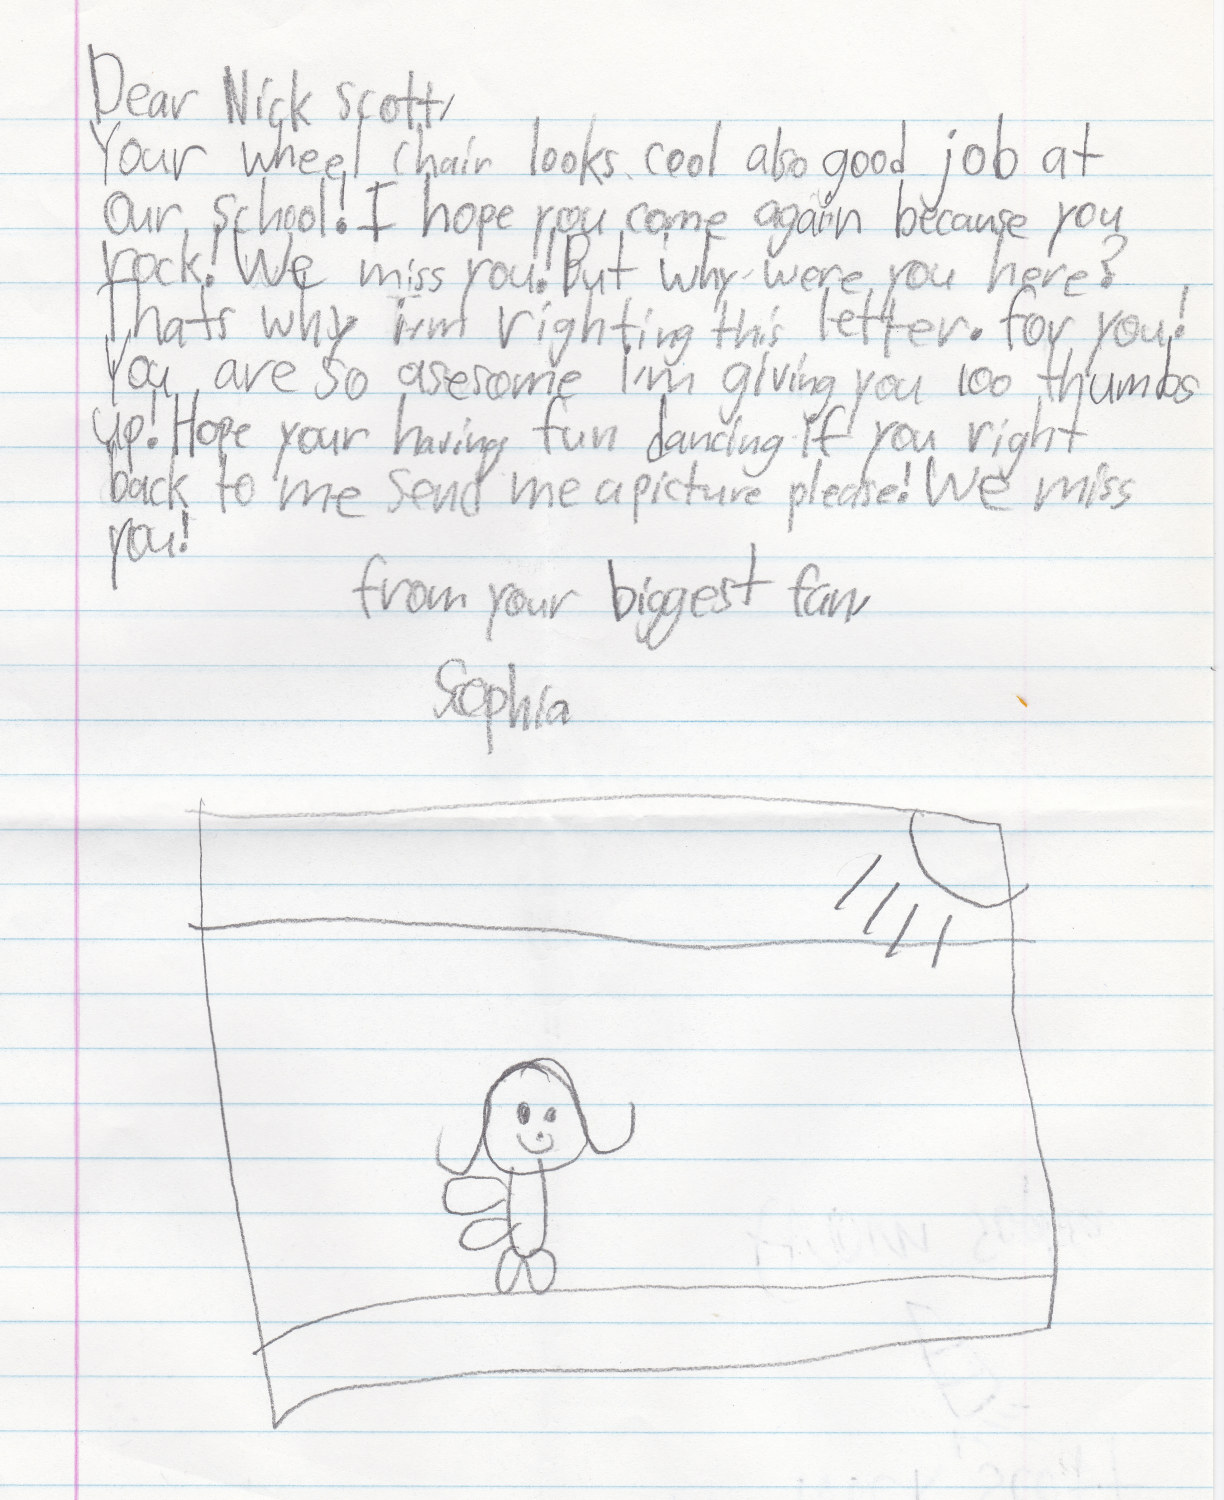 Dear Nick Scott,
Your wheel chair looks cool also good job at
our school! I hope you come again because you
rock! We miss you! But why were you here?
Thats why i'm righting this letter. for you!
You are so asesome I'm giving you 100 thumbs
up! Hope your having fun dancing if you right
back to me send me a picture please! We miss
you!
from your biggest fan,
Sophia